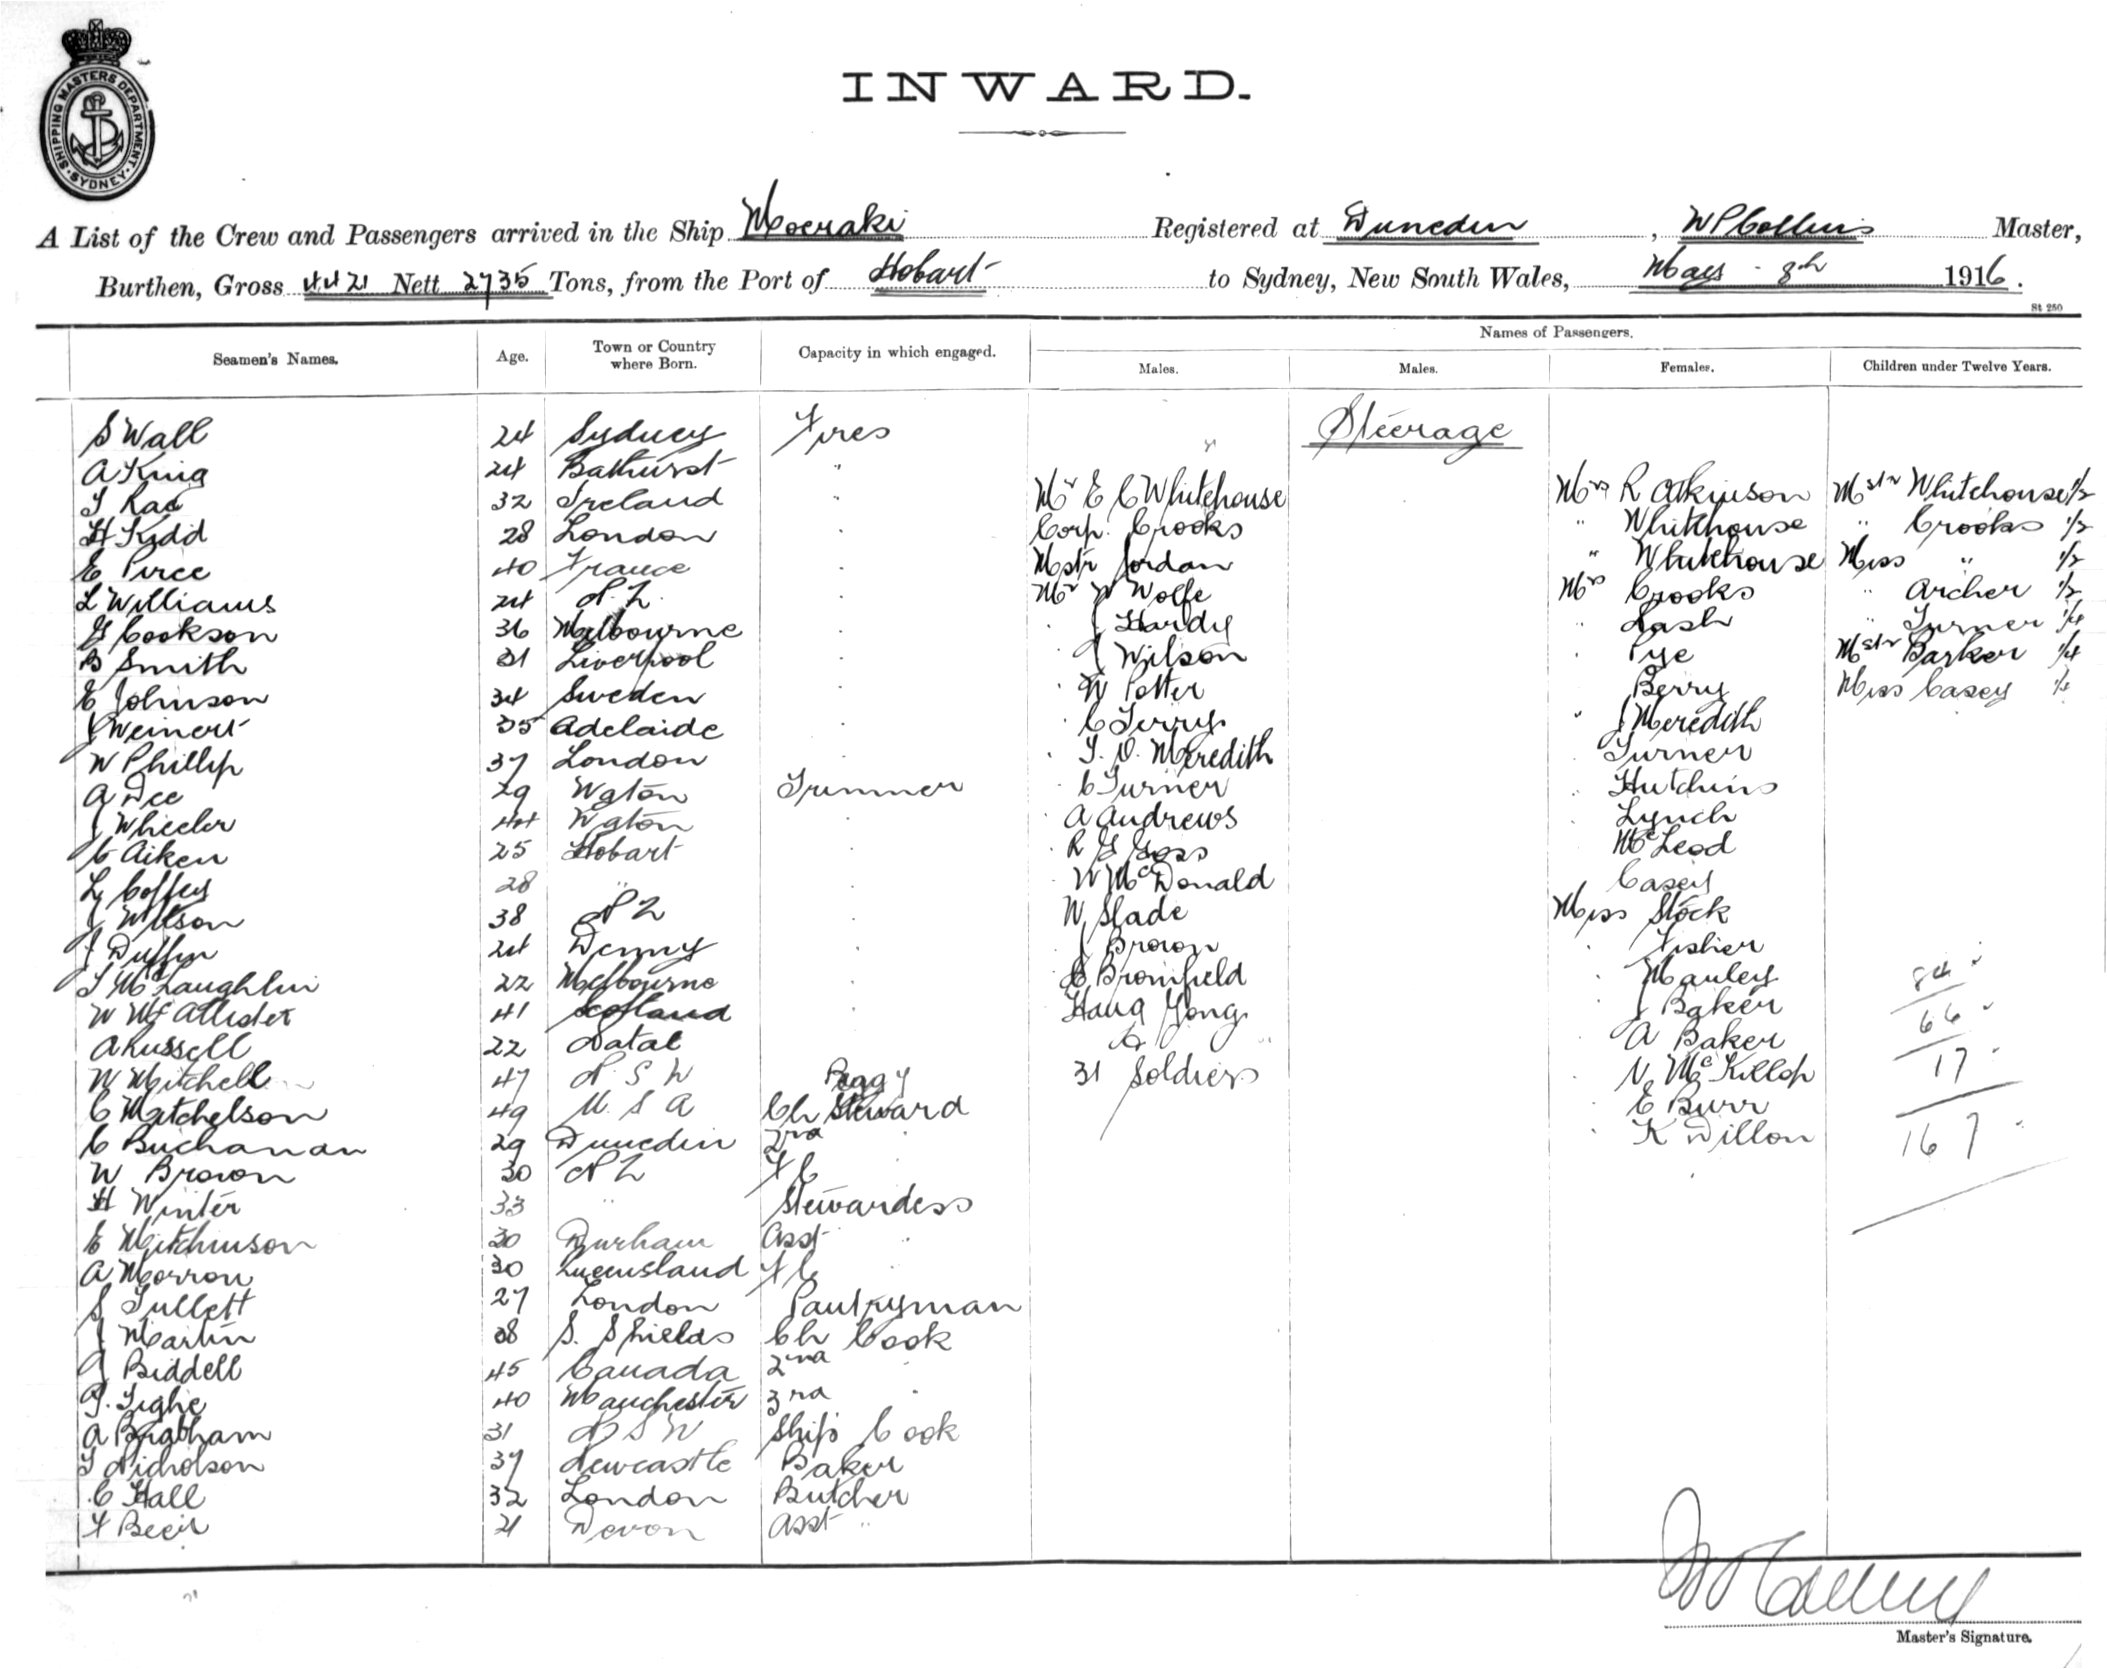 SHIPPING MASTERS DEPARTMENT
SYDNEY
INWARD.
A List of the Crew and Passengers arrived in the Ship Moeraki Registered at Dunedin, W P Collins Master,
Burthen, Gross 4421 Nett 2735 Tons, from the Port of Hobart to Sydney, New South Wales, May 8th 1916.
St 250
Names of Passengers.
Seamen's Names. Age. Town or Country where Born. Capacity in which engaged. Males. Males. Females. Children under Twelve Years.
S Wall 24 Sydney Fires Steerage
A King 24 Bathurst "
T Rae 32 Ireland " Mr E C Whitehouse Mrs R Atkinson Mstr Whitehouse 1/2
H Kidd 28 London Corp. Crooks " Whitehouse " Crooks 1/2
E Pirce 40 France Mstr Jordan " Whitehouse Miss " 1/2
L Williams 24 N.Z. Mr W Wolfe Mrs Crooks " Archer 1/2
G Cookson 36 Melbourne J Hardy " Lash " Turner 1/4
B Smith 31 Liverpool J Wilson Pye Mstr Barker 1/4
E Johnson 34 Sweden W Potter Berry Miss Casey
J Weinert 35 Adelaide C Terry " J Meredith
W Phillip 37 London T. O. Meredith Turner
A Dee 29 Wgton Trimmer C Turner Hutchins
J Wheeler 44 Wgton A Andrews Lynch
C Aiken 25 Hobart R G Goss McLeod
L Coffey 28 " W McDonald Casey
J Wilson 38 N Z W Slade Miss Stock
J Duffin 24 Denny J Brown Fisher
T McLaughlin 22 Melbourne C Bromfield Manley 84
W McAllister 41 Scotland Hang Gong J Baker 66
A Russell 22 Natal & A Baker
W Mitchell 47 N S W Peggy 31 Soldiers N McKillop 17
C Matchelson 49 U. S A Ch Steward E Burr
C Buchanan 29 Dunedin 2nd K Dillon 167
W Brown 30 N Z F C
H Winter 33 " Stewardess
E Mitchinson 30 Durham Asst
A Morron 30 Queensland F C
S Tullett 27 London Pantryman
J Martin 38 S. Shields Ch Cook
J Biddell 45 Canada 2nd
P. Tighe 40 Manchester 3rd
A Brigham 31 N S W Ships Cook
T Nicholson 37 Newcastle Baker
C Hall 32 London Butcher
F Beer 21 Devon Asst "
W P Collins
Master's Signature.